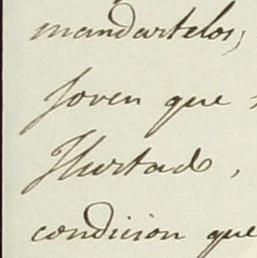 mandartelos;
joven que
Hurtado,
condicion que